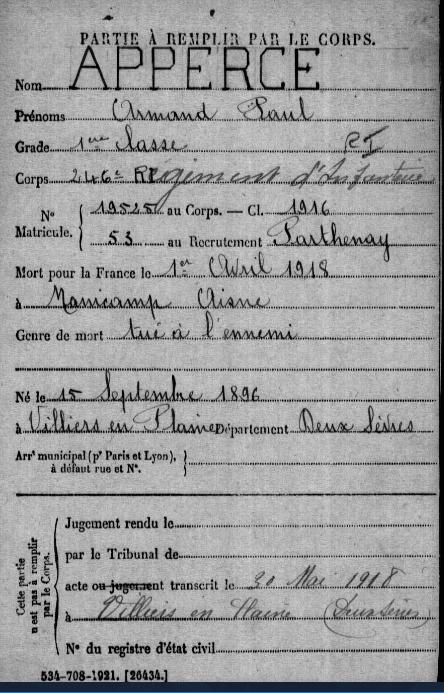 PARTIE À REMPLIR PAR LE CORPS.
Nom APPERCÉ
Prénoms Armand Paul
Grade 1ère classe RI
Corps 246e Régiment d'Infanterie
N° Matricule. { 19525 au Corps. — Cl. 1916
53 au Recrutement Parthenay
Mort pour la France le 1er Avril 1918
à Manicamp Aisne
Genre de mort tué à l'ennemi
Né le 15 Septembre 1896
à Villiers en Plaine Département Deux Sèvres
Arrt municipal (pr Paris et Lyon), à défaut rue et N°. }
Cette partie n'est pas à remplir par le Corps. {
Jugement rendu le
par le Tribunal de
acte ou jugement transcrit le 30 Mai 1918
à Villiers en Plaine (Deux Sèvres)
N° du registre d'état civil
534-708-1921. [26434.]